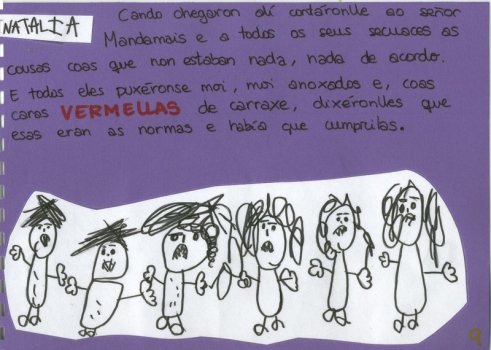 NATALIA
Cando chegaron alí contáronlle ao señor
Mandamais e a todos os seus secuaces as
cousas coas que non estaban nada, nada de acordo.
E todos eles puxéronse moi, moi anoxados e, coas
caras VERMELLAS de carraxe, dixéronlles que
esas eran as normas e había que cumprilas.
9